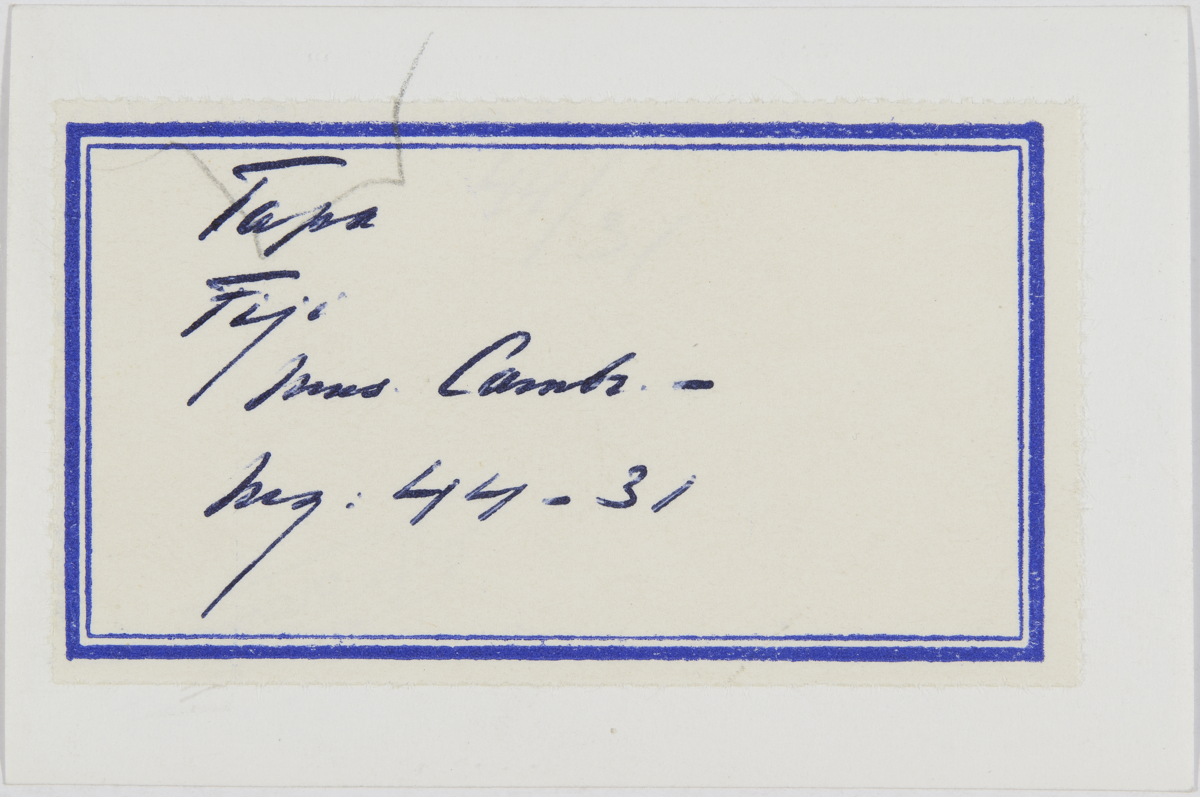 Tapa
Fiji
Mus. Cambr. -
Neg: 44-31